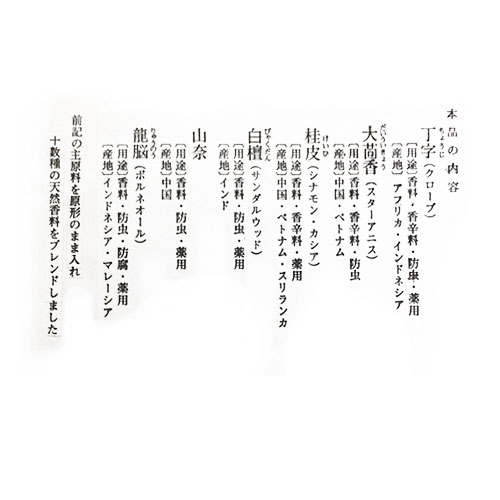 本品の内容
丁字(クローブ)
ちょうじ
[用途]香料・香辛料・防虫・薬用
[産地]アフリカ・インドネシア
大茴香(スターアニス)
だいういきょう
[用途]香料・香辛料・防虫
[産地]中国・ベトナム
桂皮(シナモン・カシア)
けいひ
[用途]香料・香辛料・薬用
[産地]中国・ベトナム・スリランカ
白檀(サンダルウッド)
びゃくだん
[用途]香料・防虫・薬用
[産地]インド
山奈
[用途]香料・防虫・薬用
[産地]中国
龍脳(ボルネオール)
りゅうのう
[用途]香料・防虫・防腐・薬用
[産地]インドネシア・マレーシア
前記の主原料を原形のまま入れ
十数種の天然香料をブレンドしました